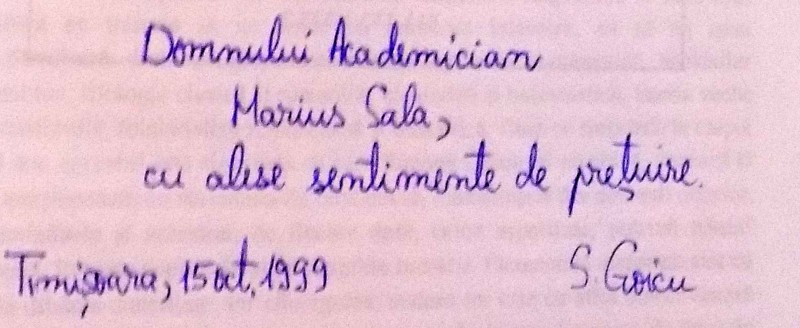 Domnului Academician
Marius Sala,
cu alese sentimente de prețuire.
Timișoara, 15 oct. 1999
S. Goicu